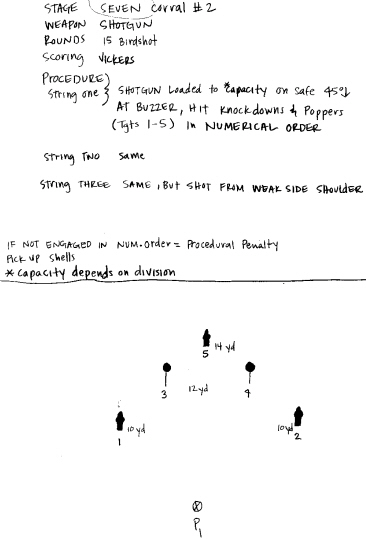 STAGE SEVEN Corral #2
WEAPON SHOTGUN
ROUNDS 15 Birdshot
Scoring VICKERS
PROCEDURE)
String one { SHOTGUN Loaded to *Capacity on Safe 45°↓
AT BUZZER, HIT Knockdowns & Poppers
(Tgts 1-5) in NUMERICAL ORDER
String TWO Same
String THREE SAME, BUT SHOT FROM WEAK SIDE SHOULDER
IF NOT ENGAGED IN NUM. Order = Procedural Penalty
Pick up Shells
* Capacity depends on division
5 14 yd
3 12 yd 4
1 10 yd 10 yd 2
P1